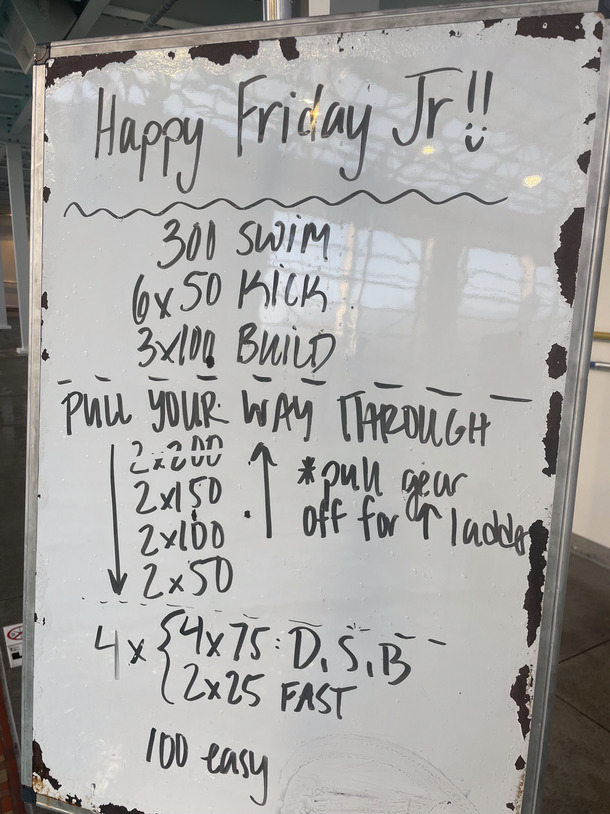 Happy Friday Jr!!
300 SWIM
6x50 KICK
3x100 BUILD
PULL YOUR WAY THROUGH
2x200
2x150
2x100
2x50
*pull gear
off for ↑ ladder
4x { 4x75: D, S, B
2x25 FAST
100 easy